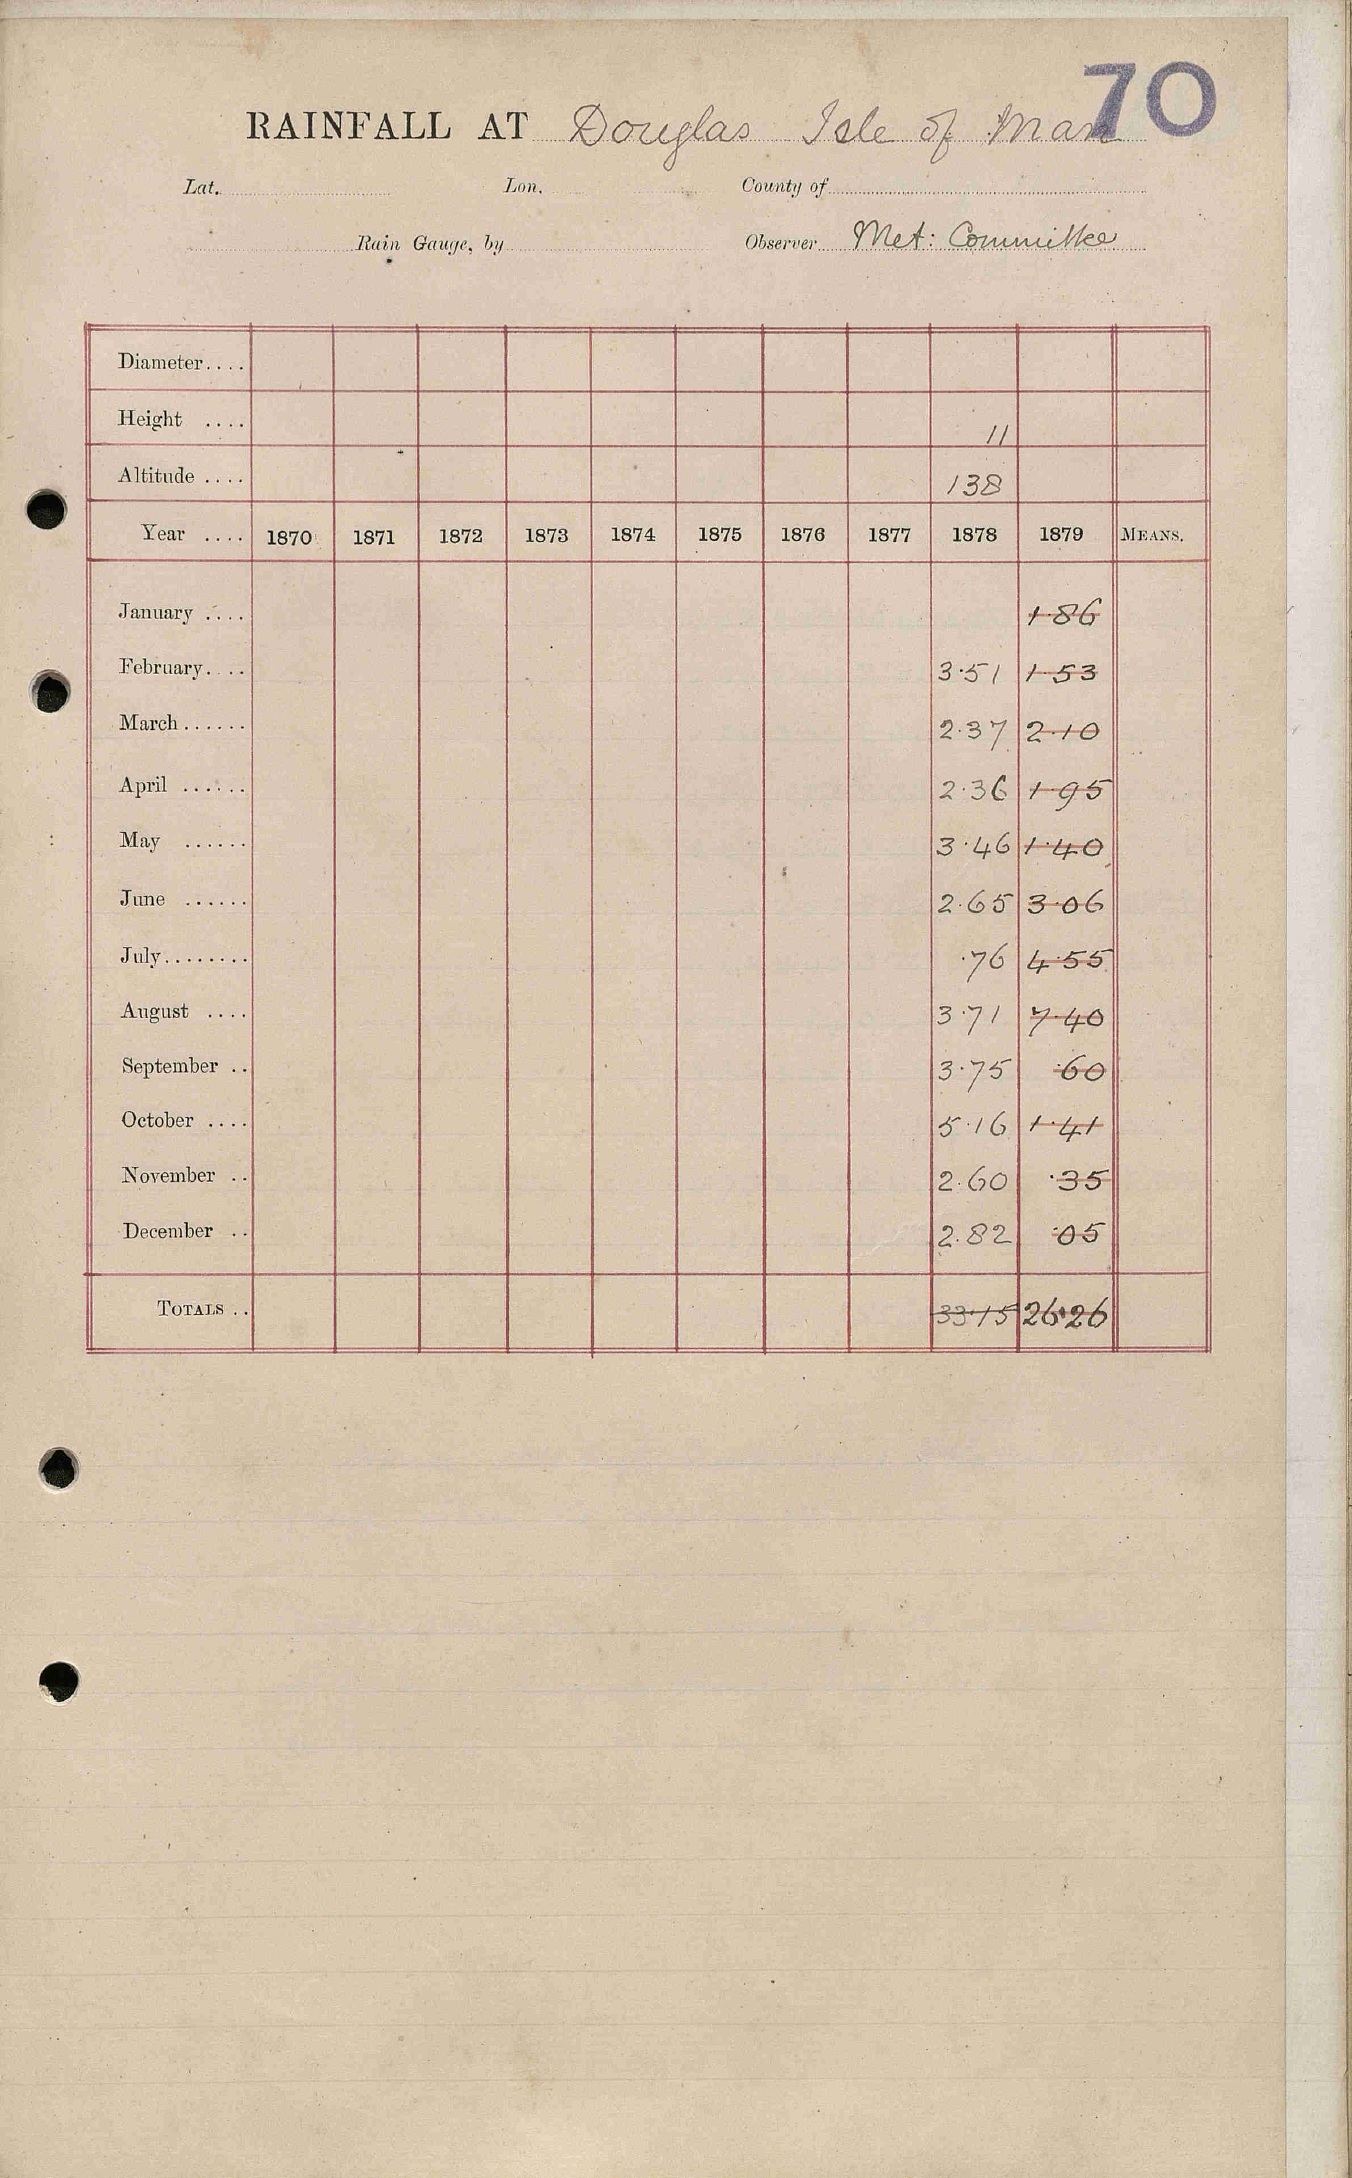 70
RAINFALL AT Douglas Isle of Man
Lat. Lon. County of
Rain Gauge, by Observer Met: Committee
Diameter....
Height .... 11
Altitude .... 138
Year .... 1870 1871 1872 1873 1874 1875 1876 1877 1878 1879 MEANS.
January .... 1.86
February.... 3.51 1.53
March...... 2.37 2.10
April ...... 2.36 1.95
May ...... 3.46 1.40
June ...... 2.65 3.06
July........ .76 4.55
August .... 3.71 7.40
September .. 3.75 .60
October .... 5.16 1.41
November .. 2.60 .35
December .. 2.82 .05
TOTALS .. 33.15 26.26